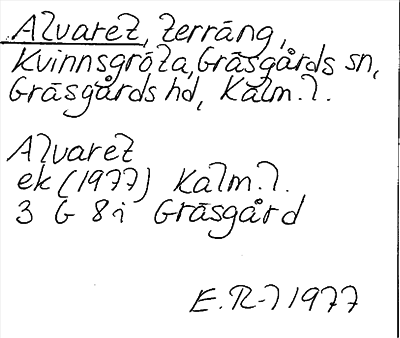 Alvaret, terräng,
Kvinnsgröta, Gräsgårds sn,
Gräsgårds hd, Kalm. l.
Alvaret
ek (1977) Kalm. l.
3 G 8 i Gräsgård
E. R-l 1977